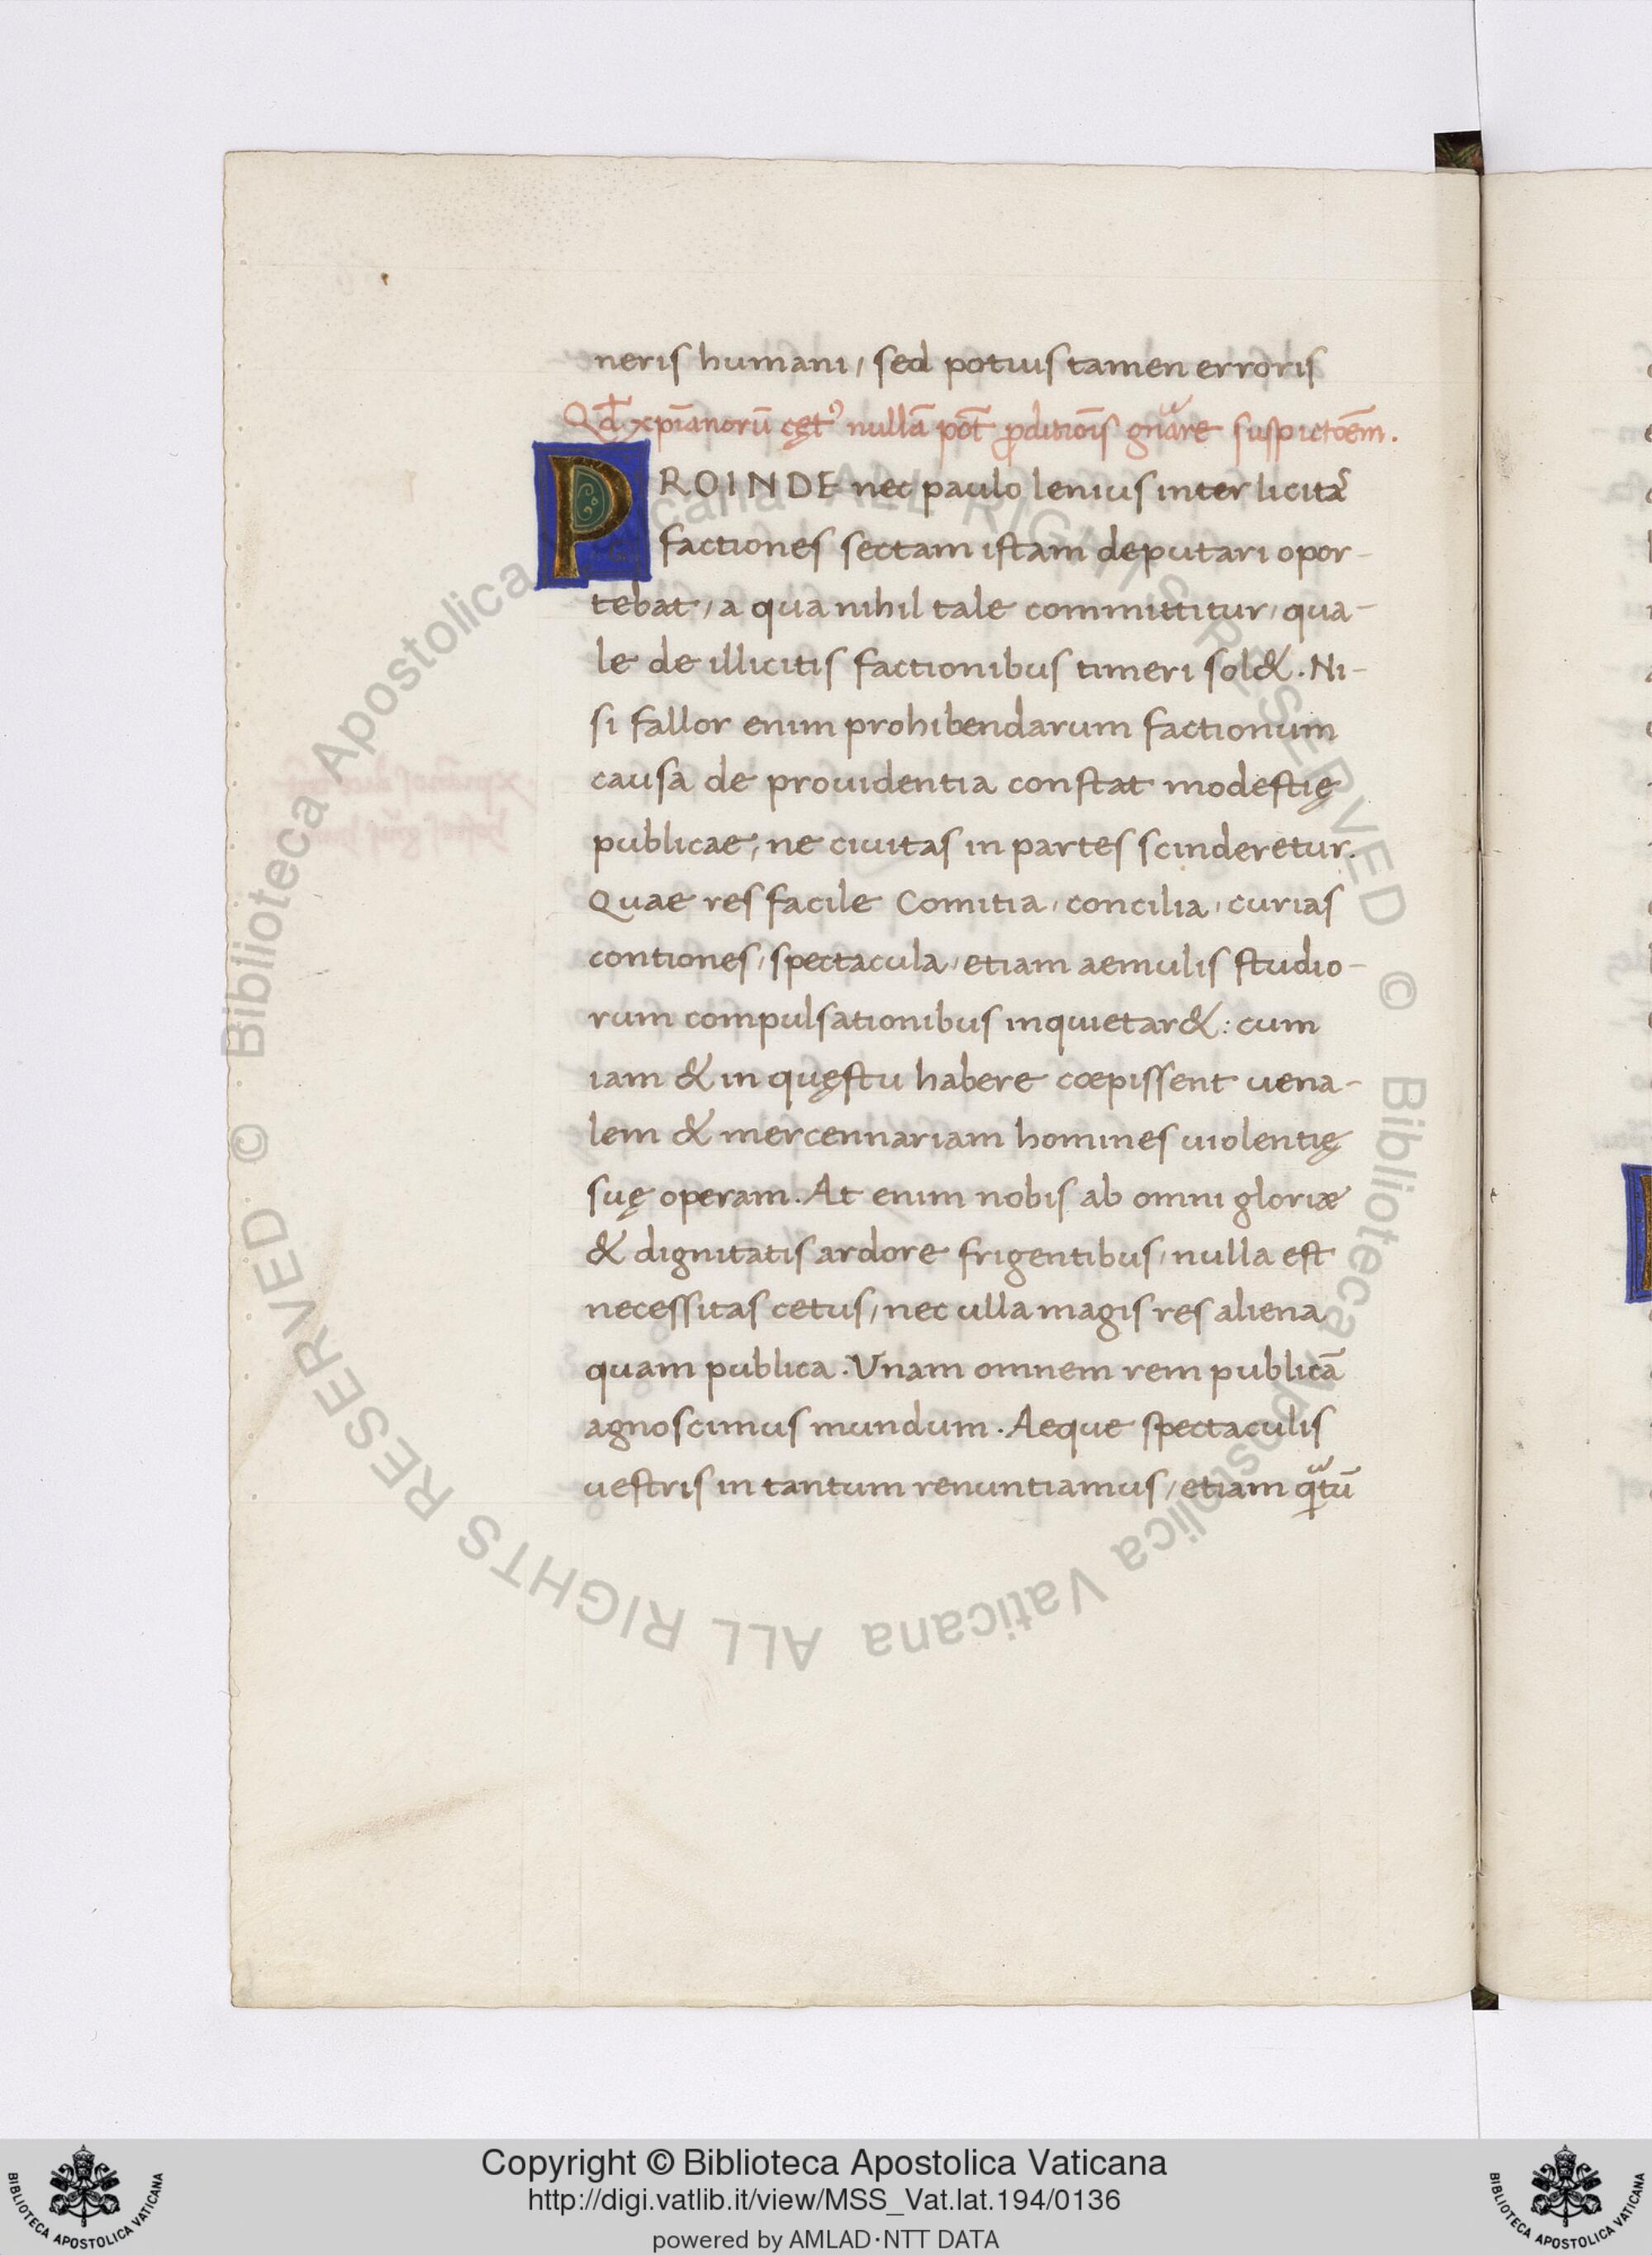 neris humani, sed potius tamen erroris
Qđ xp̄ianorū cęt᾿ nullā pōt ꝓditiōis gn̄are suspictōēm.
PROINDE nec paulo lenius inter licitas
factiones sectam istam deputari opor-
tebat, a qua nihil tale committitur, qua-
le de illicitis factionibus timeri sol&. Ni-
si fallor enim prohibendarum factionum
causa de prouidentia constat modestię
publicae, ne ciuitas in partes scinderetur.
Quae res facile Comitia, concilia, curias
contiones, spectacula, etiam aemulis studio-
rum compulsationibus inquietar&: cum
iam & in quęstu habere cœpissent uena-
lem & mercennariam homines uiolentię
suę operam. At enim nobis ab omni gloriæ
& dignitatis ardore frigentibus, nulla est
necessitas cetus, nec ulla magis res aliena
quam publica. Vnam omnem rem publicā
agnoscimus mundum. Aeque spectaculis
uestris in tantum renuntiamus, etiam qͣtū
© Biblioteca Apostolica Vaticana ALL RIGHTS RESERVED
© Biblioteca Apostolica Vaticana ALL RIGHTS RESERVED
Copyright © Biblioteca Apostolica Vaticana
http://digi.vatlib.it/view/MSS_Vat.lat.194/0136
powered by AMLAD·NTT DATA
BIBLIOTECA APOSTOLICA VATICANA
BIBLIOTECA APOSTOLICA VATICANA